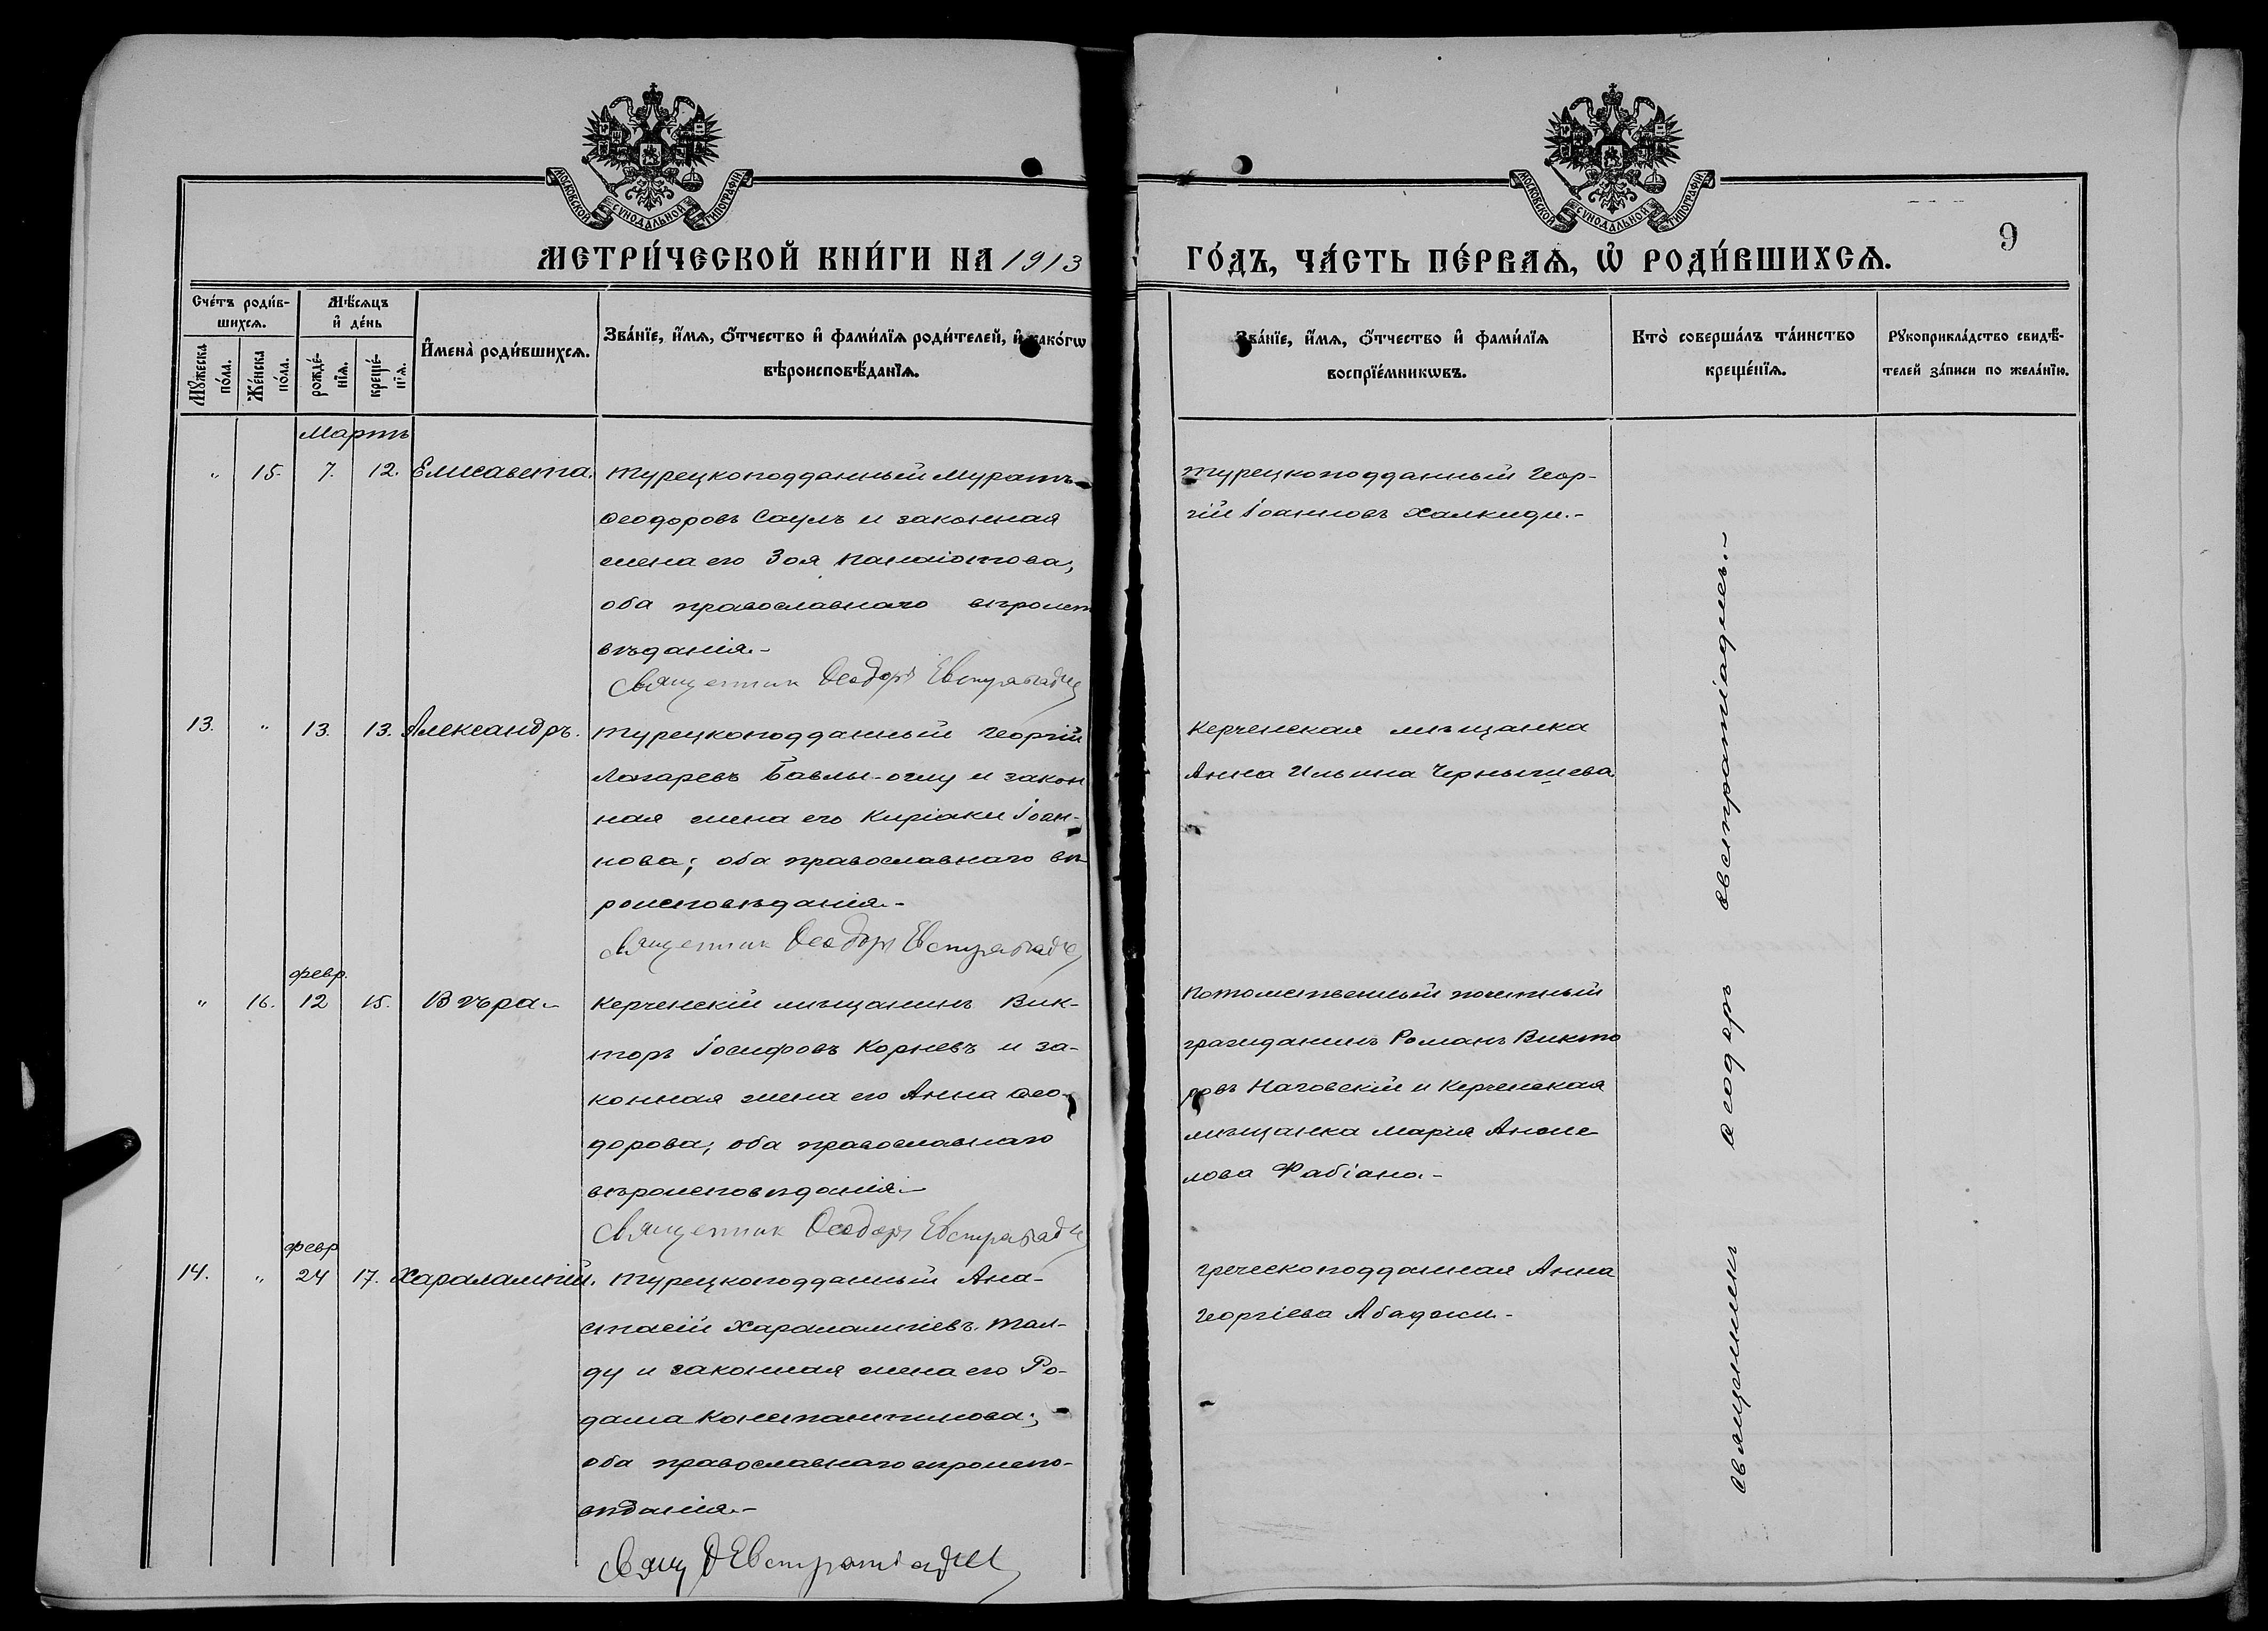 МОСКОВСКОЙ СѴНОДАЛЬНОЙ ТИПОГРАФІИ
МОСКОВСКОЙ СѴНОДАЛЬНОЙ ТИПОГРАФІИ
МЕТРИ́ЧЕСКОЙ КНИ́ГИ НА 1913 ГО́ДЪ, ЧА́СТЬ ПЕ́РВАѦ, Ѡ РОДИ́ВШИХСѦ.
9
Сче́тъ роди́в-
шихсѧ.
Мѣ́сѧцъ
и҆ де́нь
Мꙋ́жеска
по́ла.
Же́нска
по́ла.
рожде́-
нїѧ.
креще́-
нїѧ.
И҆мена̀ роди́вшихсѧ.
Зва́нїе, и҆́мѧ, ѻ҆́тчество и҆ фами́лїѧ роди́телей, и҆ како́гѡ
вѣроисповѣ́данїѧ.
Зва́нїе, и҆́мѧ, ѻ҆́тчество и҆ фами́лїѧ
воспрїе́мникѡвъ.
Кто̀ соверша́лъ та́инство
креще́нїѧ.
Рꙋкоприкла́дство свидѣ́-
телей за́писи по жела́нїю.
Мартъ
" 15. 7. 12. Елисавета. Турецкоподданный Муратъ
Ѳеодоровъ Саулъ и законная
жена его Зоя Панаіотова,
оба православнаго вѣроисп
вѣданія.-
Священник Ѳеодоръ Евстратіади
Турецкоподданный Геор-
гій Іоанновъ Халкиди.-
13. " 13. 13. Александръ. Турецкоподданный Георгій
Лазаревъ Бавлы-оглу и закон
ная жена его Киріаки Іоан-
нова; оба православнаго вѣ-
роисповѣданія.-
Священник Ѳеодоръ Евстратіади
Керченская мѣщанка
Анна Ильина Чернышева
февр.
" 16. 12 15. Вѣра.- Керченскій мѣщанинъ Вик-
торъ Іосифовъ Корневъ и за-
конная жена его Анна Ѳео-
дорова; оба православнаго
вѣроисповѣданія.-
Священник Ѳеодоръ Евстратіади
Потомственный почетный
гражданинъ Романъ Викто
ровъ Наговскій и Керченская
мѣщанка Марія Анже
лова Фабіано.-
февр
14. " 24 17. Харалампій. Турецкоподданный Ана-
стасій Харалампіевъ Тал-
ду и законная жена его Ро-
дама Константинова;
оба православнаго вѣроиспо-
вѣданія.-
Свящ Ѳ Евстратіади
Греческоподданная Анна
Георгіева Абаджи.-
Священникъ Ѳеодоръ Евстратіадисъ.-